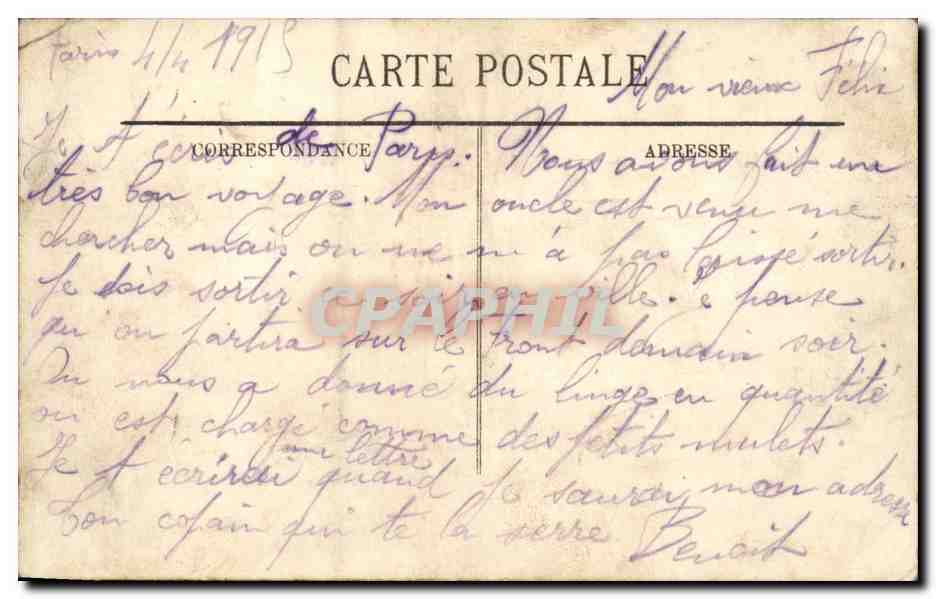 Paris 4/4 1915
CARTE POSTALE
Mon vieux Félix
CORRESPONDANCE
ADRESSE
Je t'écris de Paris. Nous avons fait un
très bon voyage. Mon oncle est venu me
chercher mais on ne m'a pas laissé sortir.
Je dois sortir ce soir en ville. Je pense
qu'on partira sur le front demain soir.
On nous a donné du linge en quantité
on est chargé comme des petits mulets.
Je t'écrirai une lettre quand je saurai mon adresse
Ton copain qui te la serre
Benoit
CPAPHIL